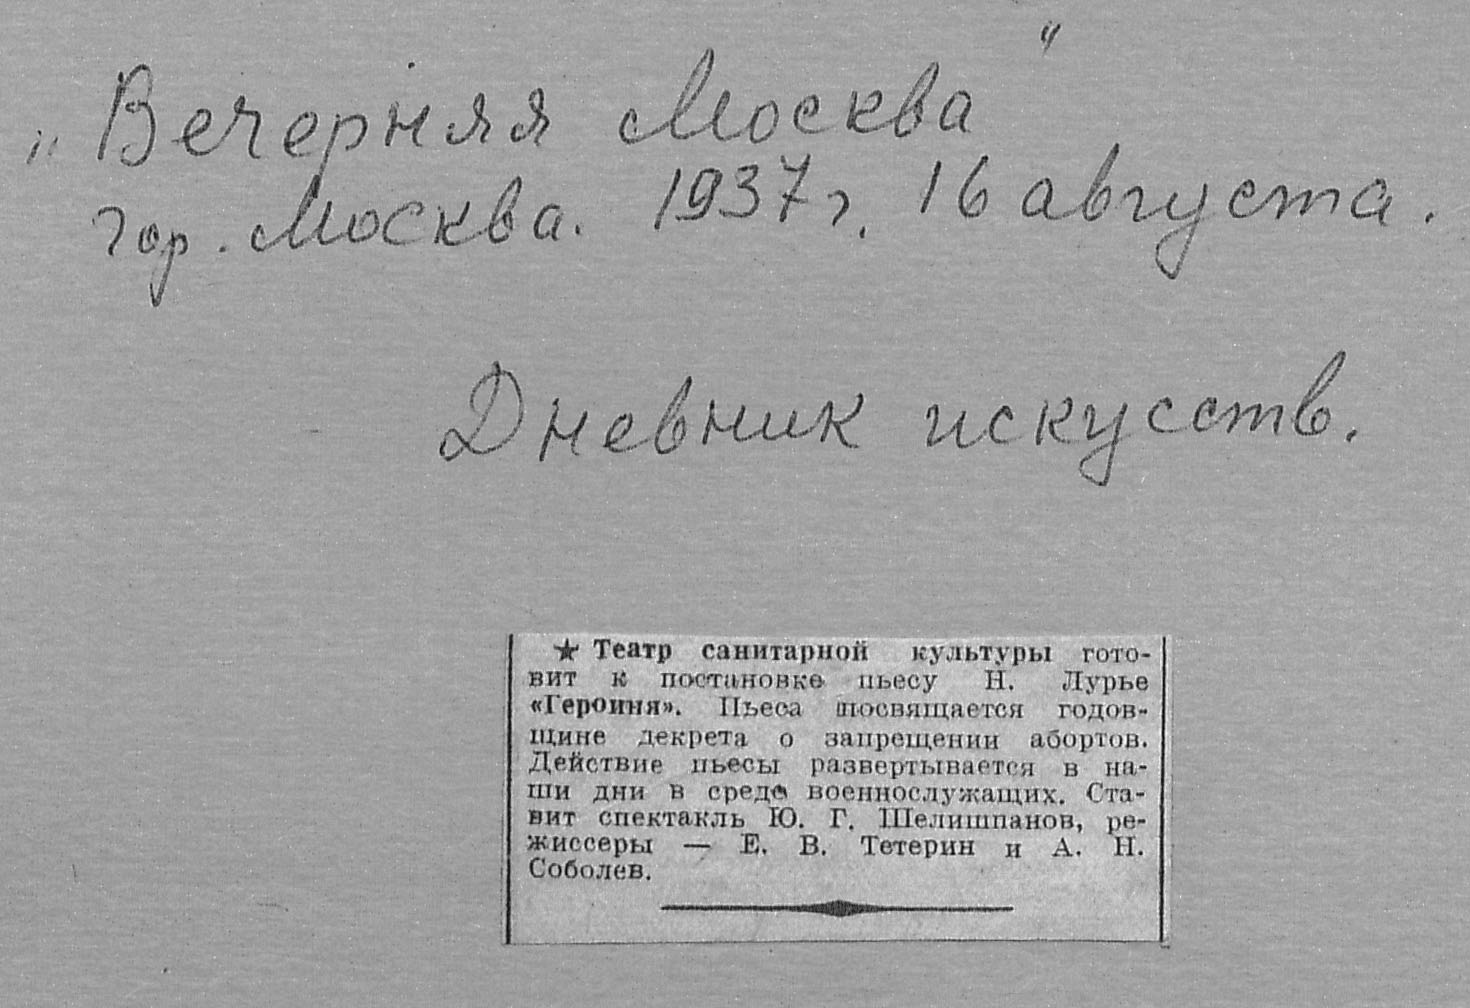 „Вечерняя Москва"
гор. Москва. 1937 г. 16 августа.
Дневник искусств.
★ Театр санитарной культуры гото-
вит к постановке пьесу Н. Лурье
«Героиня». Пьеса посвящается годов-
щине декрета о запрещении абортов.
Действие пьесы развертывается в на-
ши дни в среде военнослужащих. Ста-
вит спектакль Ю. Г. Шелишпанов, ре-
жиссеры — Е. В. Тетерин и А. Н.
Соболев.